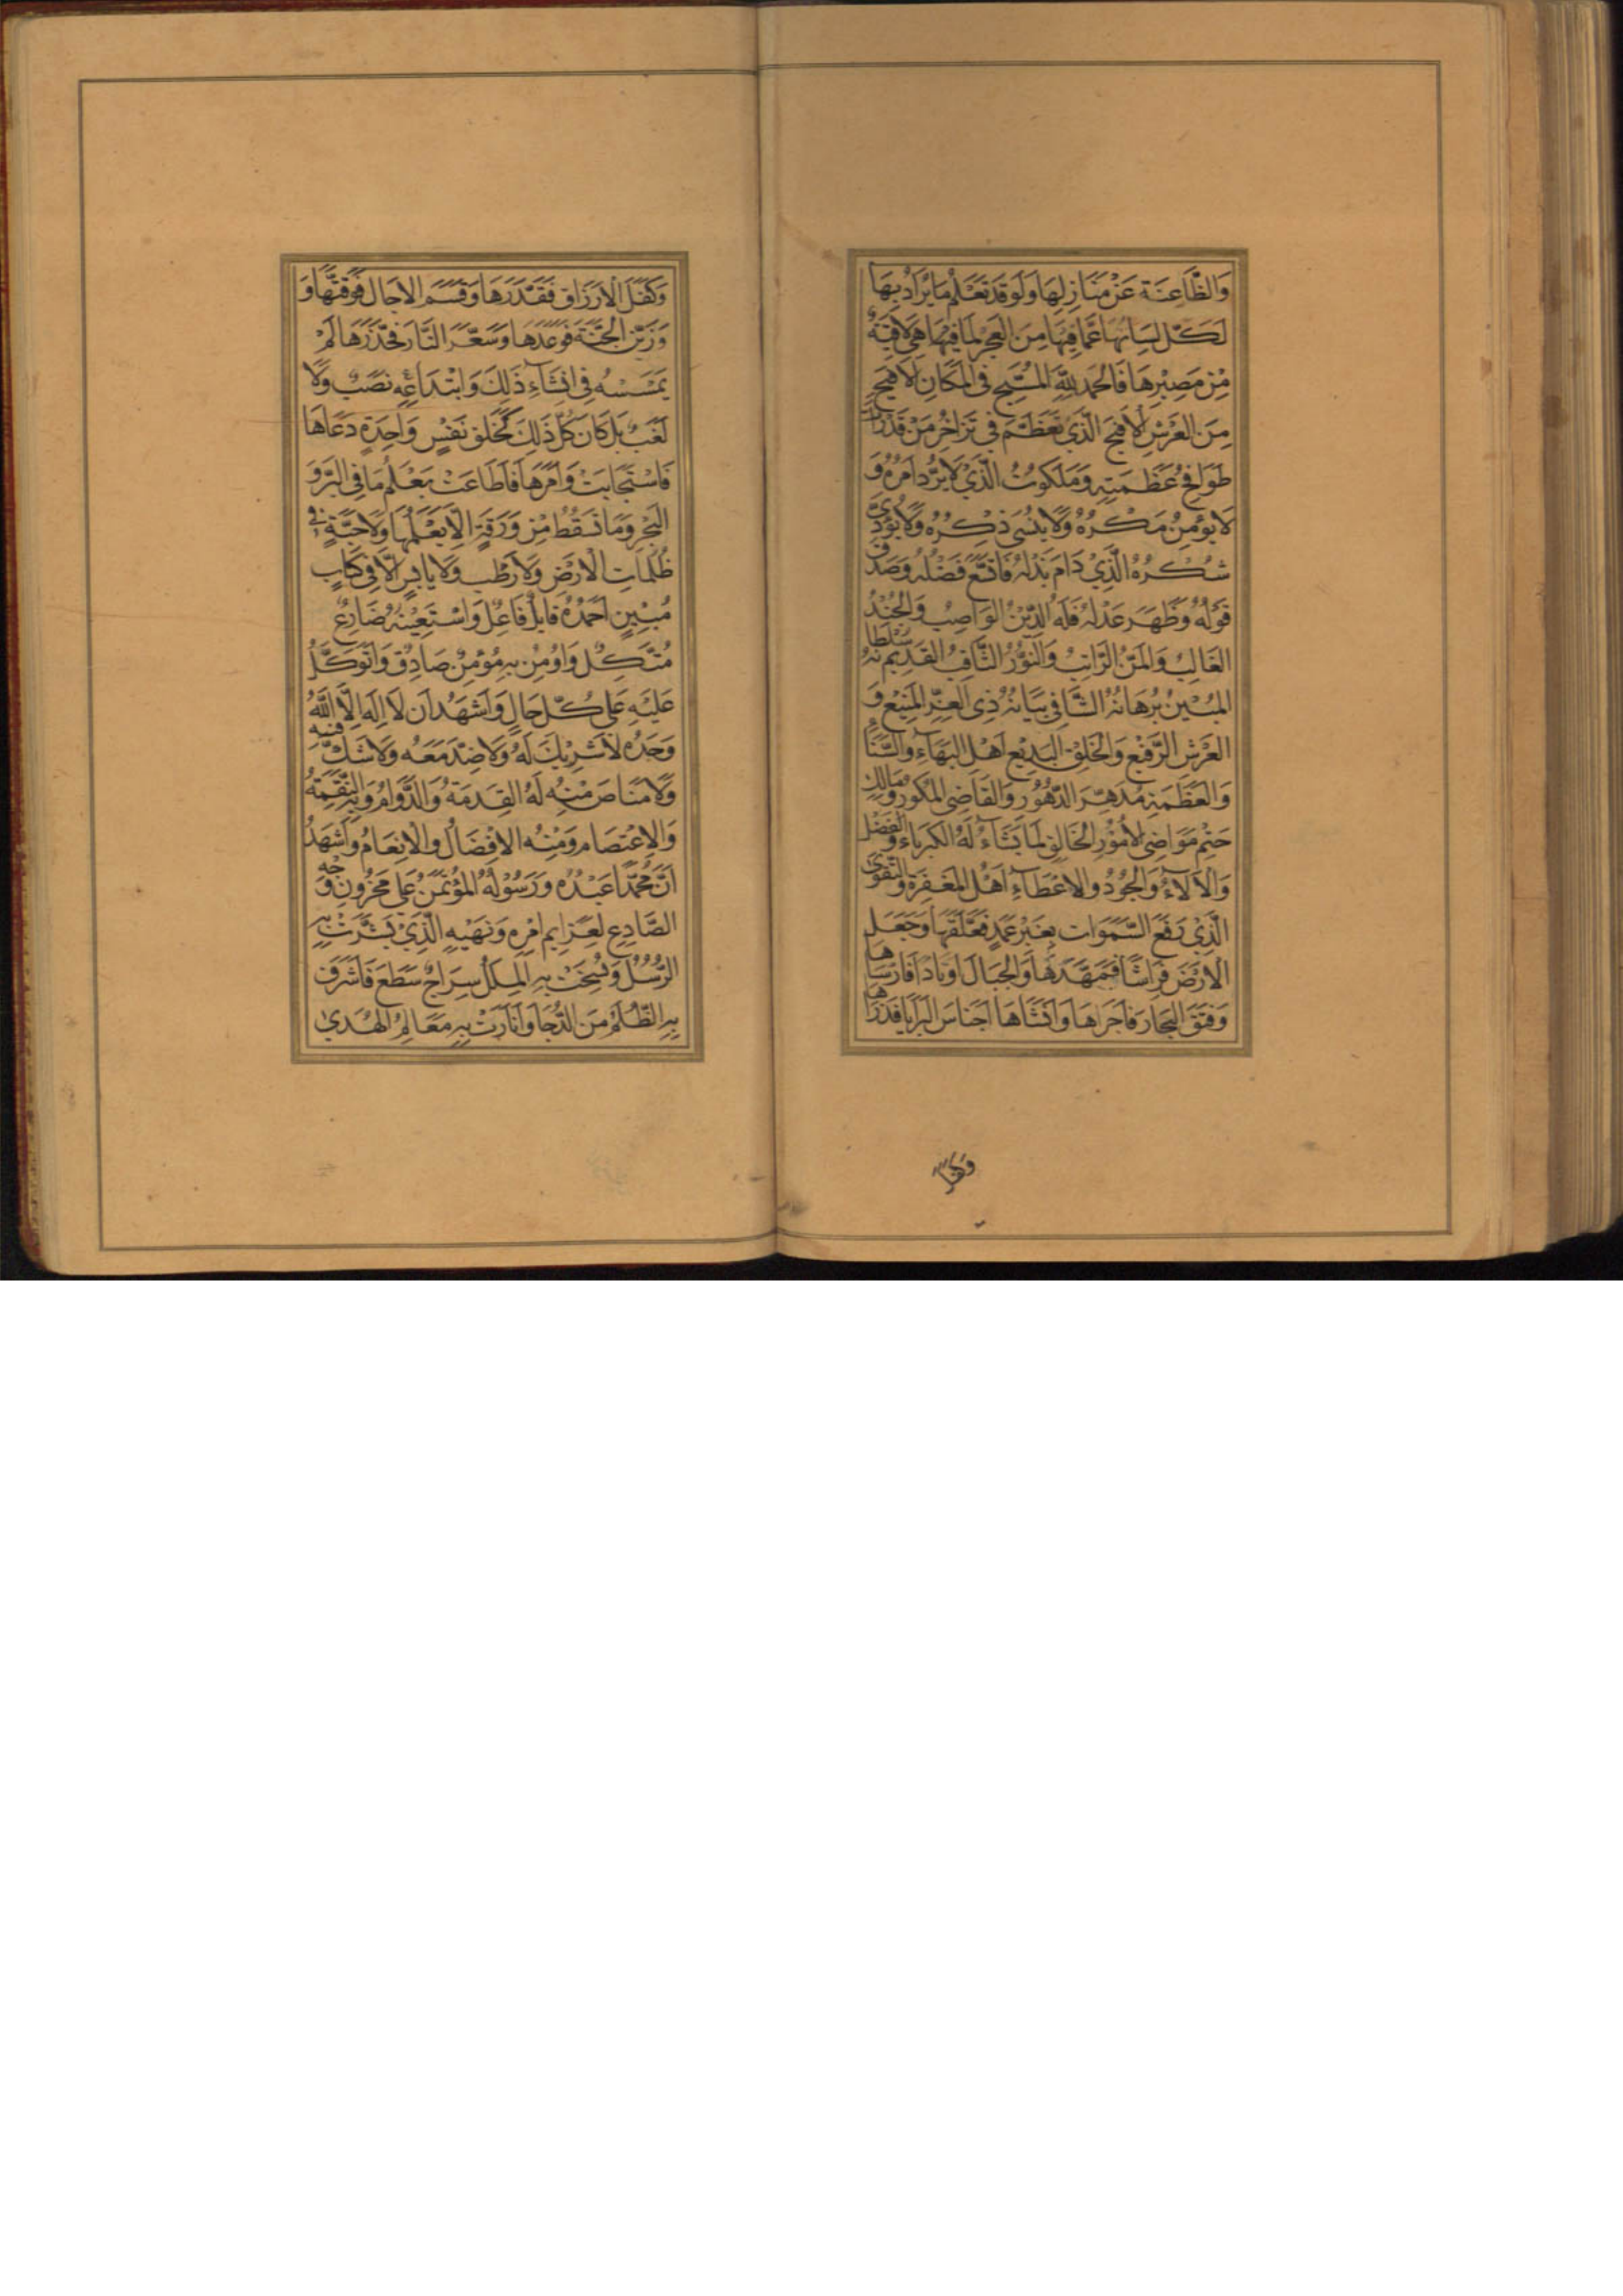 وَالظَّاعِنَة عَنْ مَنَازِلِهَا وَلَوْ قَدْ تَعْلَمُ مَا يُرَادُ بِهَا
لَكَلَّ لِسَانُهَا عَمَّا فِيهَا مِنَ العَجْزِ لِمَا فِيهَا هِيَ لَاقِيَةٌ
مِنْ مَصِيْرِهَا فَالحَمْدُ لِلّٰهِ المُسَبَّحِ فِى المَكَانِ لَا هَيَجٍ
مِنَ العَرْشِ لَا هَيَجَ الَّذِي تَعَظَّمَ فِي
طَوَامِحُ عَظَمَتِهِ وَمَلَكُوتُ الَّذِيْ لَا يُرَدُّ اَمْرُهُ وَ
لَا يُؤْمِنُ مَكْرُهُ وَلَا يُنْسَى ذِكْرُهُ وَلَا يُؤَدّٰى
شُكْرُهُ الَّذِيْ دَامَ بَذْلُهُ فَاتَّسَعَ فَضْلُهُ وَصَدَقَ
قَوْلُهُ وَظَهَرَ عَدْلُهُ فَلَهُ الدِّيْنُ الوَاصِبُ وَالجُنْدُ
الغَالِبُ وَالمَنُّ الرَّاتِبُ وَالنُّوْرُ الثَّاقِبُ القَدِيمُ سُلْطَانُهُ
المُبِيْنُ بُرْهَانُهُ الشَّافِي بَيَانُهُ ذِى العِزِّ المَنِيْعِ وَ
العَرْشِ الرَّفِيْعِ وَالخَلْقِ البَدِيْعِ اَهْلِ البَهَآءِ وَالسَّنَاءِ
وَالعَظَمَةِ مُدَهِّرِ الدُّهُوْرِ وَالقَاضِى المَكُورِ وَمَالِكِ
حَتْمِ مَوَاضِى الأُمُوْرِ الخَالِقِ لِمَا يَشَآءُ لَهُ الكِبْرِيَاءُ وَالفَضْلُ
وَالآلَآءُ وَالجُوْدُ وَالاِعْطَآءِ اَهْلُ المَغْفِرَةِ وَالتَّقْوٰى
الَّذِيْ رَفَعَ السَّمَوَاتِ بِغَيْرِ عَمَدٍ فَعَلَّقَهَا وَجَعَلَ
الأَرْضَ فِرَاشًا فَمَهَّدَهَا وَالجِبَالَ اَوْتَادًا فَاَرْسَاهَا
وَفَتَقَ البِحَارَ فَاَجْرَاهَا وَاَنْشَاهَا اَجْنَاسَ البَرَايَا فَذَرَاهَا
وَكَفَّلَ
وَكَفَّلَ الأَرْزَاقَ فَقَدَّرَهَا وَقَسَّمَ الآجَالَ فَوَقَّتَهَا وَ
وَزَيَّنَ الجَنَّةَ فَوَعَدَهَا وَسَعَّرَ النَّارَ فَحَذَّرَهَا لَمْ
يَمْسَسْهُ فِى اِنْشَآءِ ذٰلِكَ وَابْتِدَاعِهِ نَصَبٌ وَلَا
لَغَبٌ بَلْ كَانَ كُلُّ ذٰلِكَ كَخَلْقِ نَفْسٍ وَاحِدَةٍ دَعَاهَا
فَاسْتَجَابَتْ وَاَمَرَهَا فَاَطَاعَتْ يَعْلَمُ مَا فِي البَرِّ وَ
البَحْرِ وَمَا تَسْقُطُ مِنْ وَرَقَةٍ اِلَّا يَعْلَمُهَا وَلَا حَبَّةٍ فِي
ظُلُمَاتِ الاَرْضِ وَلَا رَطْبٍ وَلَا يَابِسٍ اِلَّا فِي كِتَابٍ
مُبِيْنٍ اَحْمَدُهُ قَابِلٌ فَاعِلٌ وَاَسْتَعِيْنُهُ ضَارِعٌ
مُتَّكِلٌ وَاُوْمِنُ بِهِ مُؤْمِنٌ صَادِقٌ وَاَتَوَكَّلُ
عَلَيْهِ عَلٰى كُلِّ حَالٍ وَاَشْهَدُ اَنْ لَا اِلٰهَ اِلَّا اللّٰهُ
وَحْدَهُ لَا شَرِيْكَ لَهُ وَلَا ضِدَّ مَعَهُ وَلَا شَكَّ فِيْهِ
وَلَا مَنَاصَ مِنْهُ لَهُ القِدْمَةُ وَالدَّوَامُ وَبِهِ النِّقْمَةُ
وَالاِعْتِصَامُ وَمِنْهُ الاِفْضَالُ وَالاِنْعَامُ وَاَشْهَدُ
اَنَّ مُحَمَّدًا عَبْدُهُ وَرَسُوْلُهُ المُؤْتَمَنُ عَلٰى مَخْزُونِ وَحْيِهِ
الصَّادِعِ لِعَزَايِمِ اَمْرِهِ وَنَهْيِهِ الَّذِيْ بَشَّرَتْ بِهِ
الرُّسُلُ وَنُسِخَتْ بِهِ المِلَلُ سِرَاجٌ سَطَعَ فَاَشْرَقَ
بِهِ الظُّلَمُ مِنَ الدُّجَا وَاَنَارَتْ بِهِ مَعَالِمُ الهُدٰى